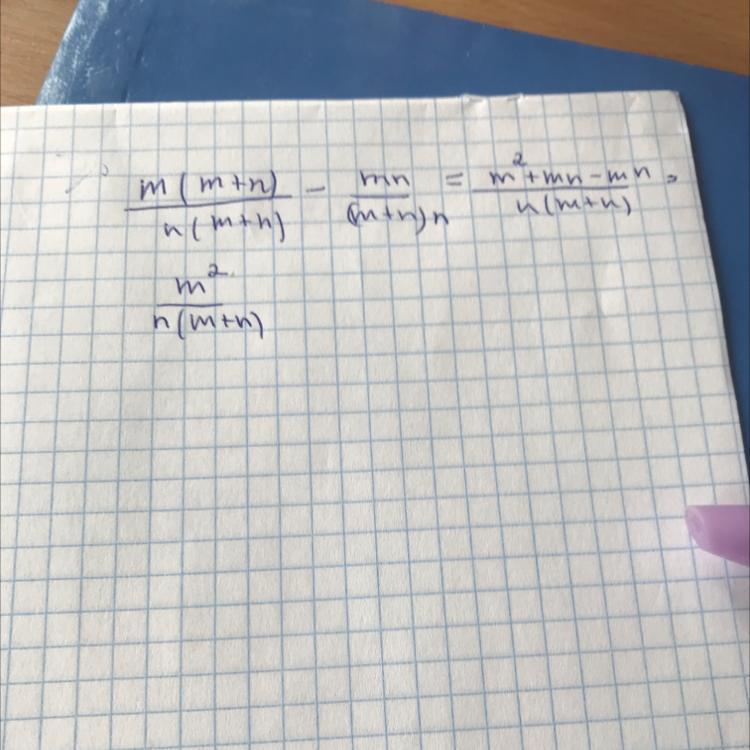 m(m+n)/n(m+n) - mn/(m+n)n = m²+mn-mn/n(m+n) =
m²/n(m+n)